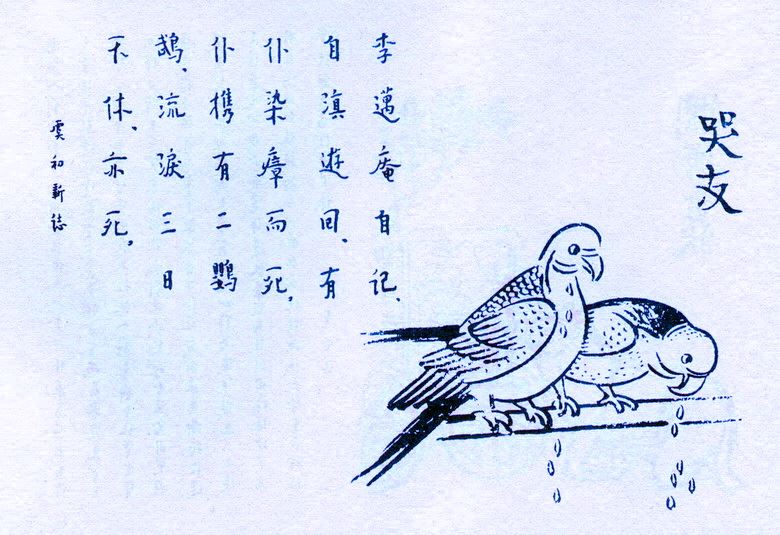 哭友
李邁庵自记、
自滇遊回、有
仆染瘴而死，
仆携有二鹦
鹉、流淚三日
不休、亦死，
虞初新誌